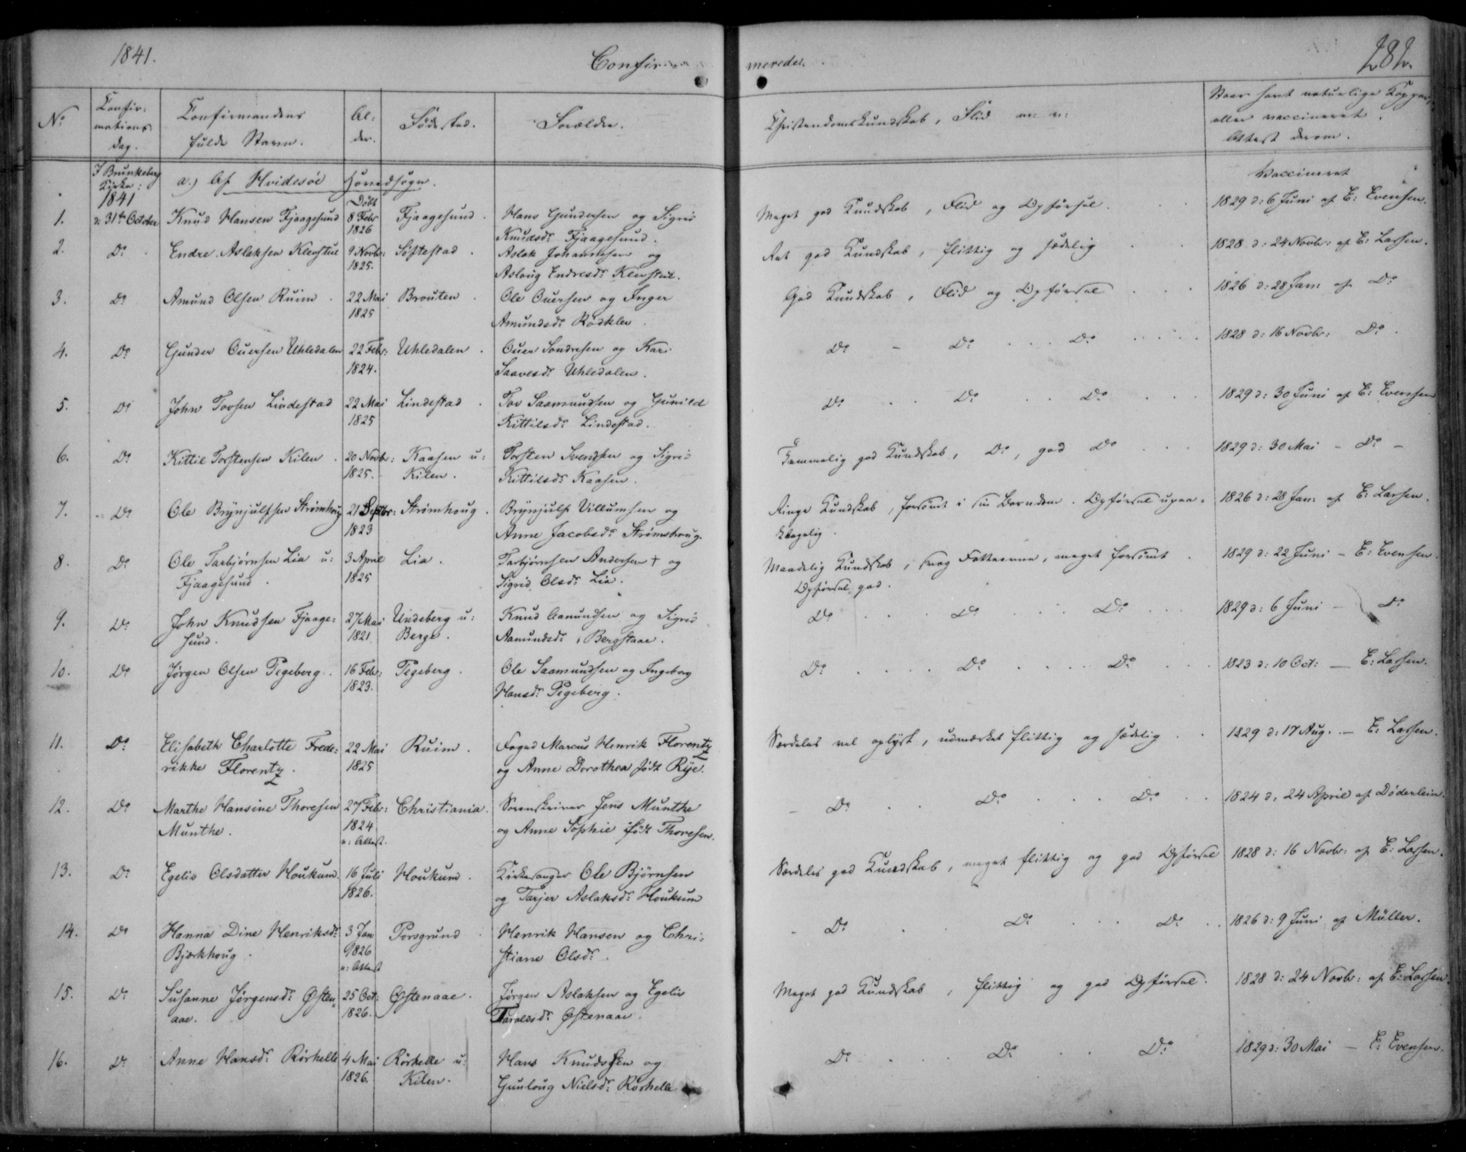 1841.
Confir- meredes.
282.
No
Confir-
mations
dag.
Confirmandens
fulde Navn.
Al-
der.
Födested.
Forældre.
Christendomskundskab, Flid m: v:
Naar havt naturlige Kopper
eller vaccineret.
Attest derom.
I Brunkeberg
Kirke:
a.) Af Hvidesøe Hovedsogn.
Vaccineret
1841
Døbt
1. d: 31te October Knud Hansen Fjaagesund 8 Febr Fjaagesund. Hans Gundersen og Sigrid Meget god Kundskab, Flid og Opførsel. 1829 d: 6 Juni af E: Evensen.
1826 Knudsdr Fjaagesund.
2. Do Endre Aslaksen Kleustul 9 Novbr: Söftestad. Aslak Johannesen og Ret god Kundskab, flittig og sædelig 1828 d: 24 Novb: af E: Larsen.
1825. Aslaug Endresdr Kleustul.
3. Do Amund Olsen Ruim. 22 Mai Brouten. Ole Ouersen og Inger God Kundskab, Flid og Opførsel 1826 d: 28 Jan: af Do
1825 Amundsdr
4. Do Gunder Ouersen Uhledalen 22 Febr: Uhledalen. Ouer Sondresen og Kari Do - Do Do 1828 d: 16 Novb: Do.
1824. Saavesdr Uhledalen.
5. Do John Torsen Lindestad 22 Mai Lindestad. Tor Saamundsen og Gunild Do Do Do 1829 d: 30 Juni af E: Evensen
1825 Kittilsdr Lindestad.
6. Do Kittil Torstensen Kilen. 20 Novbr: Kaasen u: Torsten Svendsen og Sigrid Temmelig god Kundskab, Do, god Do 1829 d: 30 Mai - Do -
1825. Kilen. Kittilsdr Kaasen.
7. Do Ole Brynjulfsen Strömhoug 21 Septbr: Strømhoug. Brynjulf Villumsen og Ringe Kundskab, forsømt i sin Barndom. Opførsel upaa- 1826 d: 28 Jan: af E: Larsen.
1823 Anne Jacobsdr Strømshoug. klagelig.
8. Do Ole Tarbjørnsen Lia u: 3 April Lia. Tarbjørnsen Andersen † og Maadelig Kundskab, svag Fatteevne, meget forsømt. 1829 d: 22 Juni - E: Evensen.
Fjaagesund. 1825 Sigrid Olsdr Lia. Opførsel god.
9. Do John Knudsen Fjaage- 27 Mai Undeberg u: Knud Aamundsen og Sigrid Do Do Do 1829 d: 6 Juni - Do
sund. 1821. Berge. Aamundsdr, Bergstaae.
10. Do Jørgen Olsen Tigeberg. 16 Feb: Tigeberg. Ole Saamundsen og Ingeborg Do Do Do 1823 d: 10 Oct: - E: Larsen.
1823. Hansdr Tigeberg.
11. Do Elisabeth Charlotte Frede- 22 Mai Ruim. Foged Marcus Henrik Florentz Særdeles vel oplyst, udmærket flittig og sædelig 1829 d: 17 Aug. - E: Larsen.
rikke Florentz. 1825 og Anne Dorothea född Rye.
12. Do Marthe Hansine Thoresen 27 Feb: Christiania. Sorenskriver Jens Munthe - Do Do Do 1824 d. 24 April af Döderlein.
Munthe. 1824. og Anne Sophie född Thoresen.
e: Attest.
13. Do Egelev Olsdatter Houkum. 16 Juli Houkum. Kirkesanger Ole Björnsen Særdeles god Kundskab, meget flittig og god Opførsel 1828 d: 16 Novb: af E: Larsen.
1826. og Tarjer Aslaksdr Houkum
14. Do Hanna Dine Henriksdr 3 Jan Porsgrund. Henrik Hansen og Chri- - Do Do Do 1826 d: 9 Juni af Müller.
Bjørkhoug. 1826 stiane Olsdr.
e: Attest
15. Do Susanne Jörgensdr Østen- 25 Oct: Østenaae. Jørgen Aslaksen og Egelev Meget god Kundskab, flittig og god Opførsel. 1828 d: 24 Novb: af E: Larsen.
aae. 1826. Taraldsdr Østenaae.
16. Do Anne Hansdr Rörhelle 4 Mai Rörhelle u: Hans Knudssen og Do Do Do 1829 d: 30 Mai - E: Evensen.
1826. Kilen. Gunloug Nielsdr Rörhelle